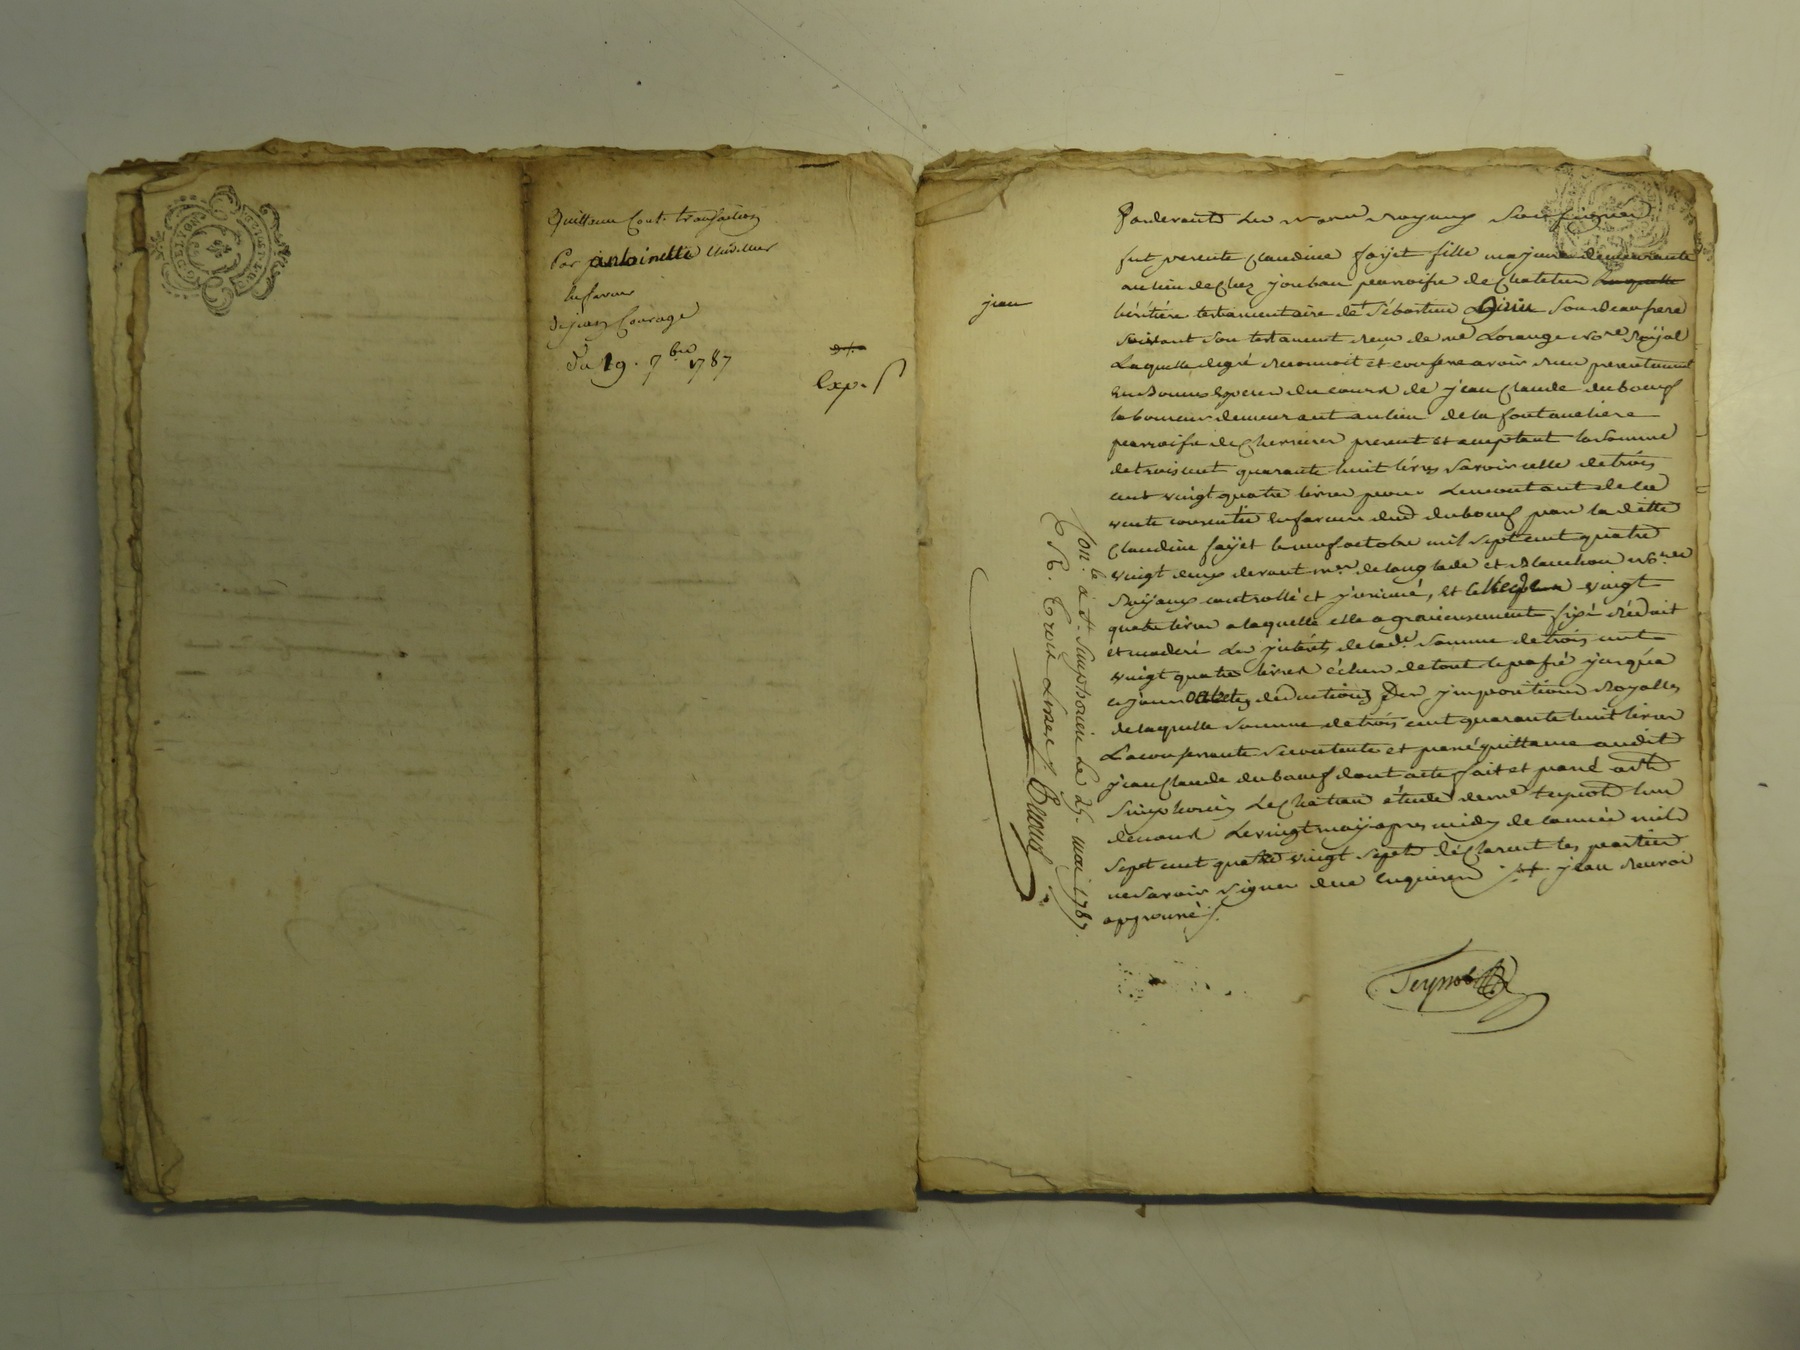 Quittance Cont. transaction
Par antoinette
en faveur
de jean Courage
du 19. 7bre 1787
Exp.
Pardevant les notaires royaux soussignés
fut presente Claudine fayet fille majeure demeurante
au lieu de Chez jouban parroisse de Chatelus laquelle
jean
héritière testamentaire de Sébastien son beaufrere
suivant son testament reçu de me Lorange nore Royal
Laquelle de gré reconnoit et confesse avoir reçu presentement
en bonnes especes du cours de jean Claude duboeuf
laboureur demeurant au lieu de la fontaneliere
parroisse de Chevrieres present et acceptant la somme
de trois cent quarante huit livres savoir celle de trois
cent vingt quatre livres pour le montant de la
vente consentie en faveur dud duboeuf par la ditte
Claudine fayet le neuf octobre mil sept cent quatre
vingt deux devant mes de langlade et Blanchon nores
Royaux controllé et jnsinué, et celle de vingt
quatre livres a laquelle elle a gracieusement fixé réduit
et modéré les jnterêts de lade somme de trois cent
vingt quatre livres échus de tout le passé jusqu'a
ce jour deductions des jmpositions Royalles
de laquelle somme de trois cent quarante huit livres
La confessante se contente et passé quittance audit
jean Claude duboeuf dont acte fait et passé a St
Simphorien le Chateau étude de me teynot l'un
de nous le vingt may apres midy de l'année mil
sept cent quatre vingt sept déclarent les parties
ne savoir signer de ce enquises jean renvoi
approuvé.
Con. le à St. Simphorien le 25. mai 1787.
Teynot